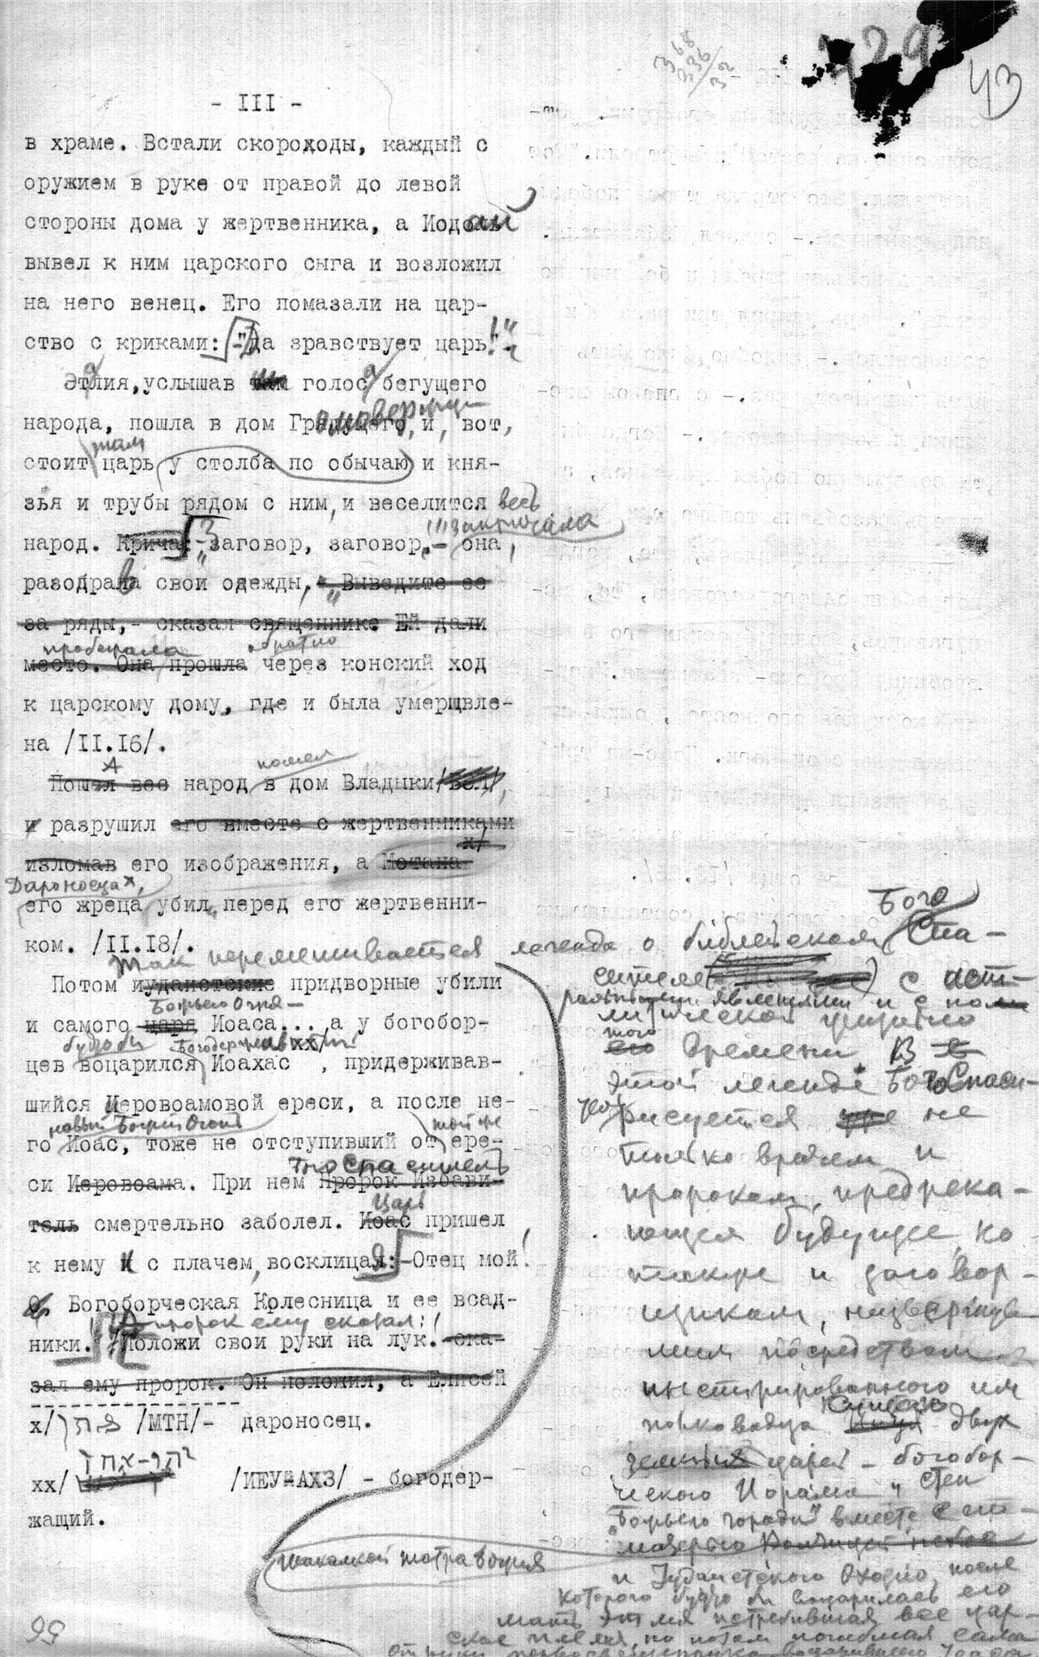 43
- III -
в храме. Встали скороходы, каждый с
оружием в руке от правой до левой
стороны дома у жертвенника, а Иодай
вывел к ним царского сыга и возложил
на него венец. Его помазали на цар-
ство с криками: "да зравствует царь!"
Этлия, услышав голоса бегущего
народа, пошла в дом Громовержца, и, вот,
там
стоит царь у столба по обычаю и кня-
зья и трубы рядом с ним, и веселится весь
закричала
народ. Крича:- заговор, заговор,- она,
разодрав свои одежды, Выведите ее
за ряды,- сказал священник. Ей дали
пробежала обратно
место. Она прошла через конский ход
к царскому дому, где и была умерщвле-
на /II.16/.
А пошел
Пошел все народ в дом Владыки,
и разрушил его вместе с жертвенниками
х/
изломав его изображения, а Мотана
Дароносца х,
его жреца убил перед его жертвенни-
ком. /II.18/.
Потом иудаистские придворные убили
Божьего Огня
и самого царя Иоаса... а у богобор-
будто бы хх/
цев воцарился Иоахас , придерживав-
шийся Иеровоамовой ереси, а после не-
новый Божий Огонь той же
го Иоас, тоже не отступивший от ере-
Богоспаситель
си Иеровоама. При нем Пророк Избави-
Царь
тель смертельно заболел. Иоас пришел
к нему и с плачем, восклицая:-Отец мой!
О, Богоборческая Колесница и ее всад-
А пророк ему сказал:
ники. Положи свои руки на лук. -ска-
зал ему пророк. Он положил, а Елисей
х/ /МТН/- дароносец.
хх/ /ИЕУ-АХЗ/ - богодер-
жащий.
Так перемешивается легенда о библейском Бого
Спа-
сителе с аст-
ральными явлениями и с по
литической
того
времени. В
этой легенде БогоСпаси-
тель рисуется уже не
только врачом и
пророком, предрека-
ющем будущее, но
также и заговор-
щиком, низвергнув-
шим посредством
инспирированного им
полководца двух
земных царей - богобор-
ческого Иорама и
Божьего города" вместе с его
и Иудаистского Охозию, после
которого будто бы воцарилась его
мать Этлия истребившая все цар-
ское племя, но потом погибшая сама
99